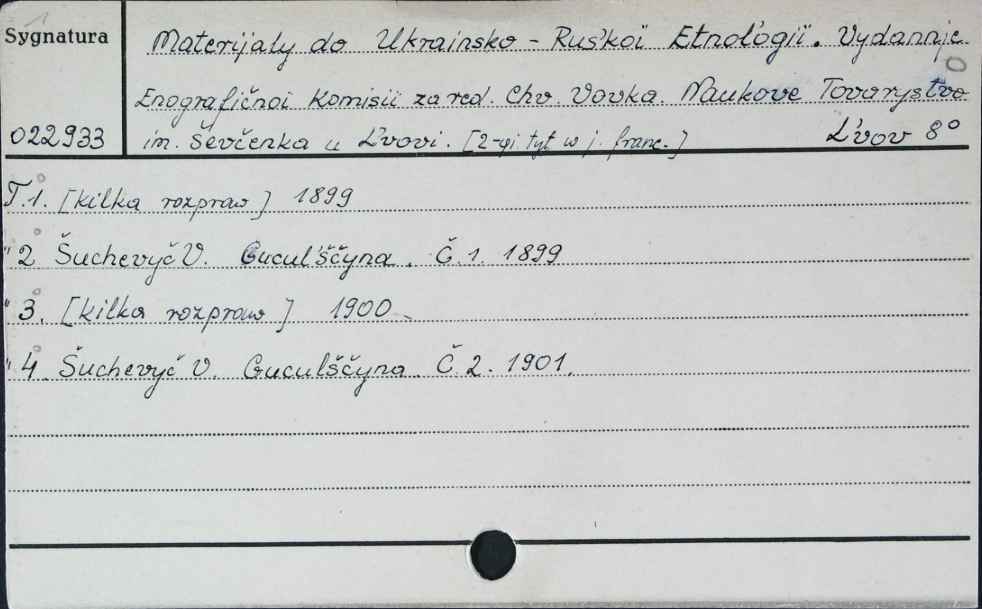 Sygnatura
Materijaly do Ukrainsko - Ruśkoï Etnol'ogiï. Vydannje
Enografičnoi Komisiï za red. Chv. Vovka. Naukove Tovarystvo
022933 im. Ševčenka u L'vovi. [2-gi tyt w j. franc.] L'vov 8°
T.1. [kilka rozpraw] 1899
" 2 Šuchevyč V. Gucul'ščyna. Č.1. 1899
" 3. [kilka rozpraw] 1900
" 4. Šuchevyč V. Guculščyna. Č.2. 1901.